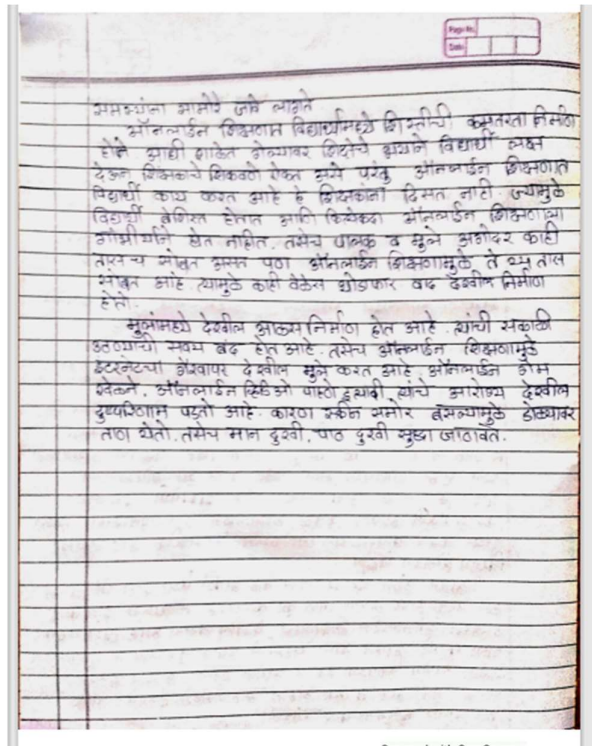 Page No.
Date
समस्यांना सामोरे जावे लागते
ऑनलाईन शिक्षणाम विद्यार्थ्यांमध्ये शिस्तीची कमतरता निर्माण
होते. आधी शाळेत गेल्यावर शिस्तचे विद्यार्थी लक्ष
देऊन शिक्षकाचे शिकवणे ऐकत असे परंतु ऑनलाईन शिक्षणात
विद्यार्थी काय करत आहे हे शिक्षकांना दिसत नाही. ज्यामुळे
विद्यार्थी बेशिस्त होतात आणि कित्येकदा ऑनलाईन शिक्षणाला
गांभीर्याने घेत नाहीत. तसेच पालक व मुले अगोदर काही
तासच सोबत असत पण ऑनलाईन शिक्षणामुळे ते २४ तास
सोबत आहे. त्यामुळे काही वेळेस थोडाफार वाद देखील निर्माण
होतो.
मुलांमध्ये देखील आळस निर्माण होत आहे. त्यांची सकाळी
उठण्याची सवय बंद होत आहे. तसेच ऑनलाईन शिक्षणामुळे
इंटरनेटचा गैरवापर देखील मुले करत आहे. ऑनलाईन गेम
खेळने. ऑनलाईन व्हिडिओ पाहणे इत्यादी त्यांचे आरोग्य देखील
दुष्परिणाम पडतो आहे. कारण स्क्रीन समोर बसल्यामुळे डोळ्यावर
ताण येतो. तसेच मान दुखी. पाठ दुखी सुद्धा जाणवत.